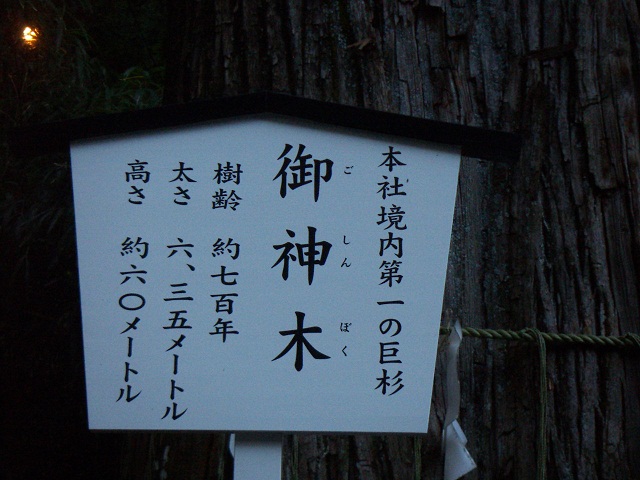 本社境内第一の巨杉
御神木
ごしんぼく
樹齢 約七百年
太さ 六、三五メートル
高さ 約六〇メートル